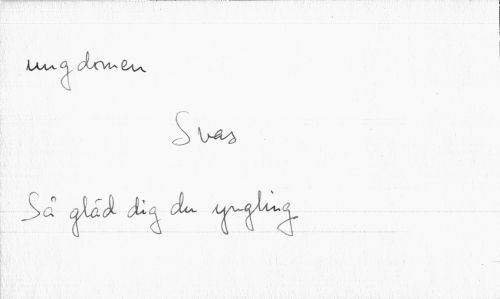 ungdomen
Svas
Så gläd dig du yngling